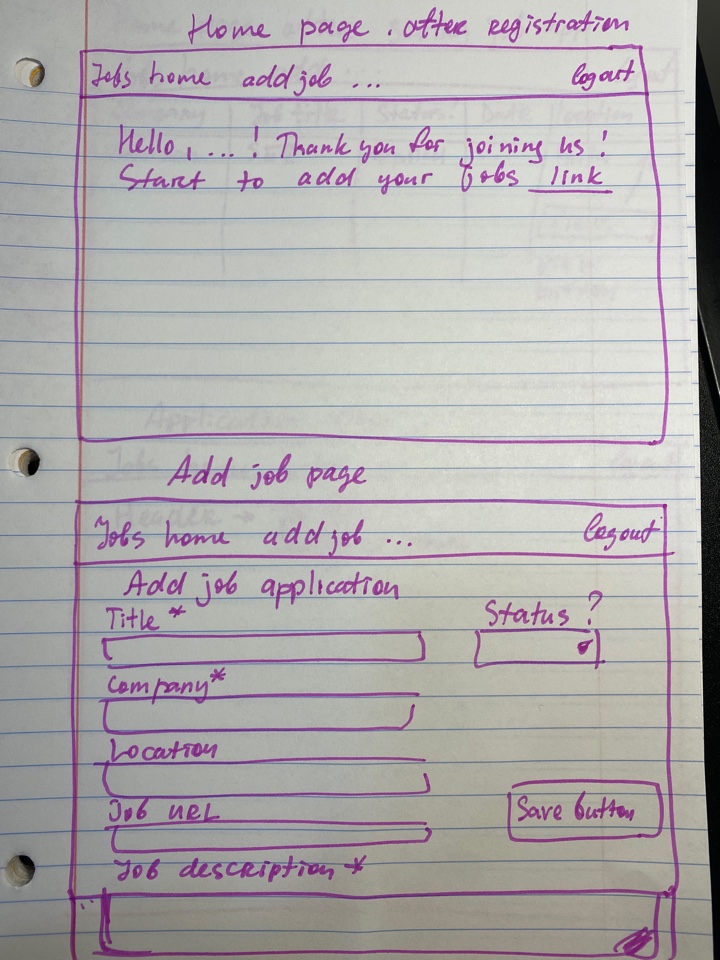 Home page . after registration
Jobs home add job ... logout
Hello, ... ! Thank you for joining us !
Start to add your jobs link
Add job page
Jobs home add job ... logout
Add job application
Title * Status ?
Company*
Location
Job URL
Save button
Job description *